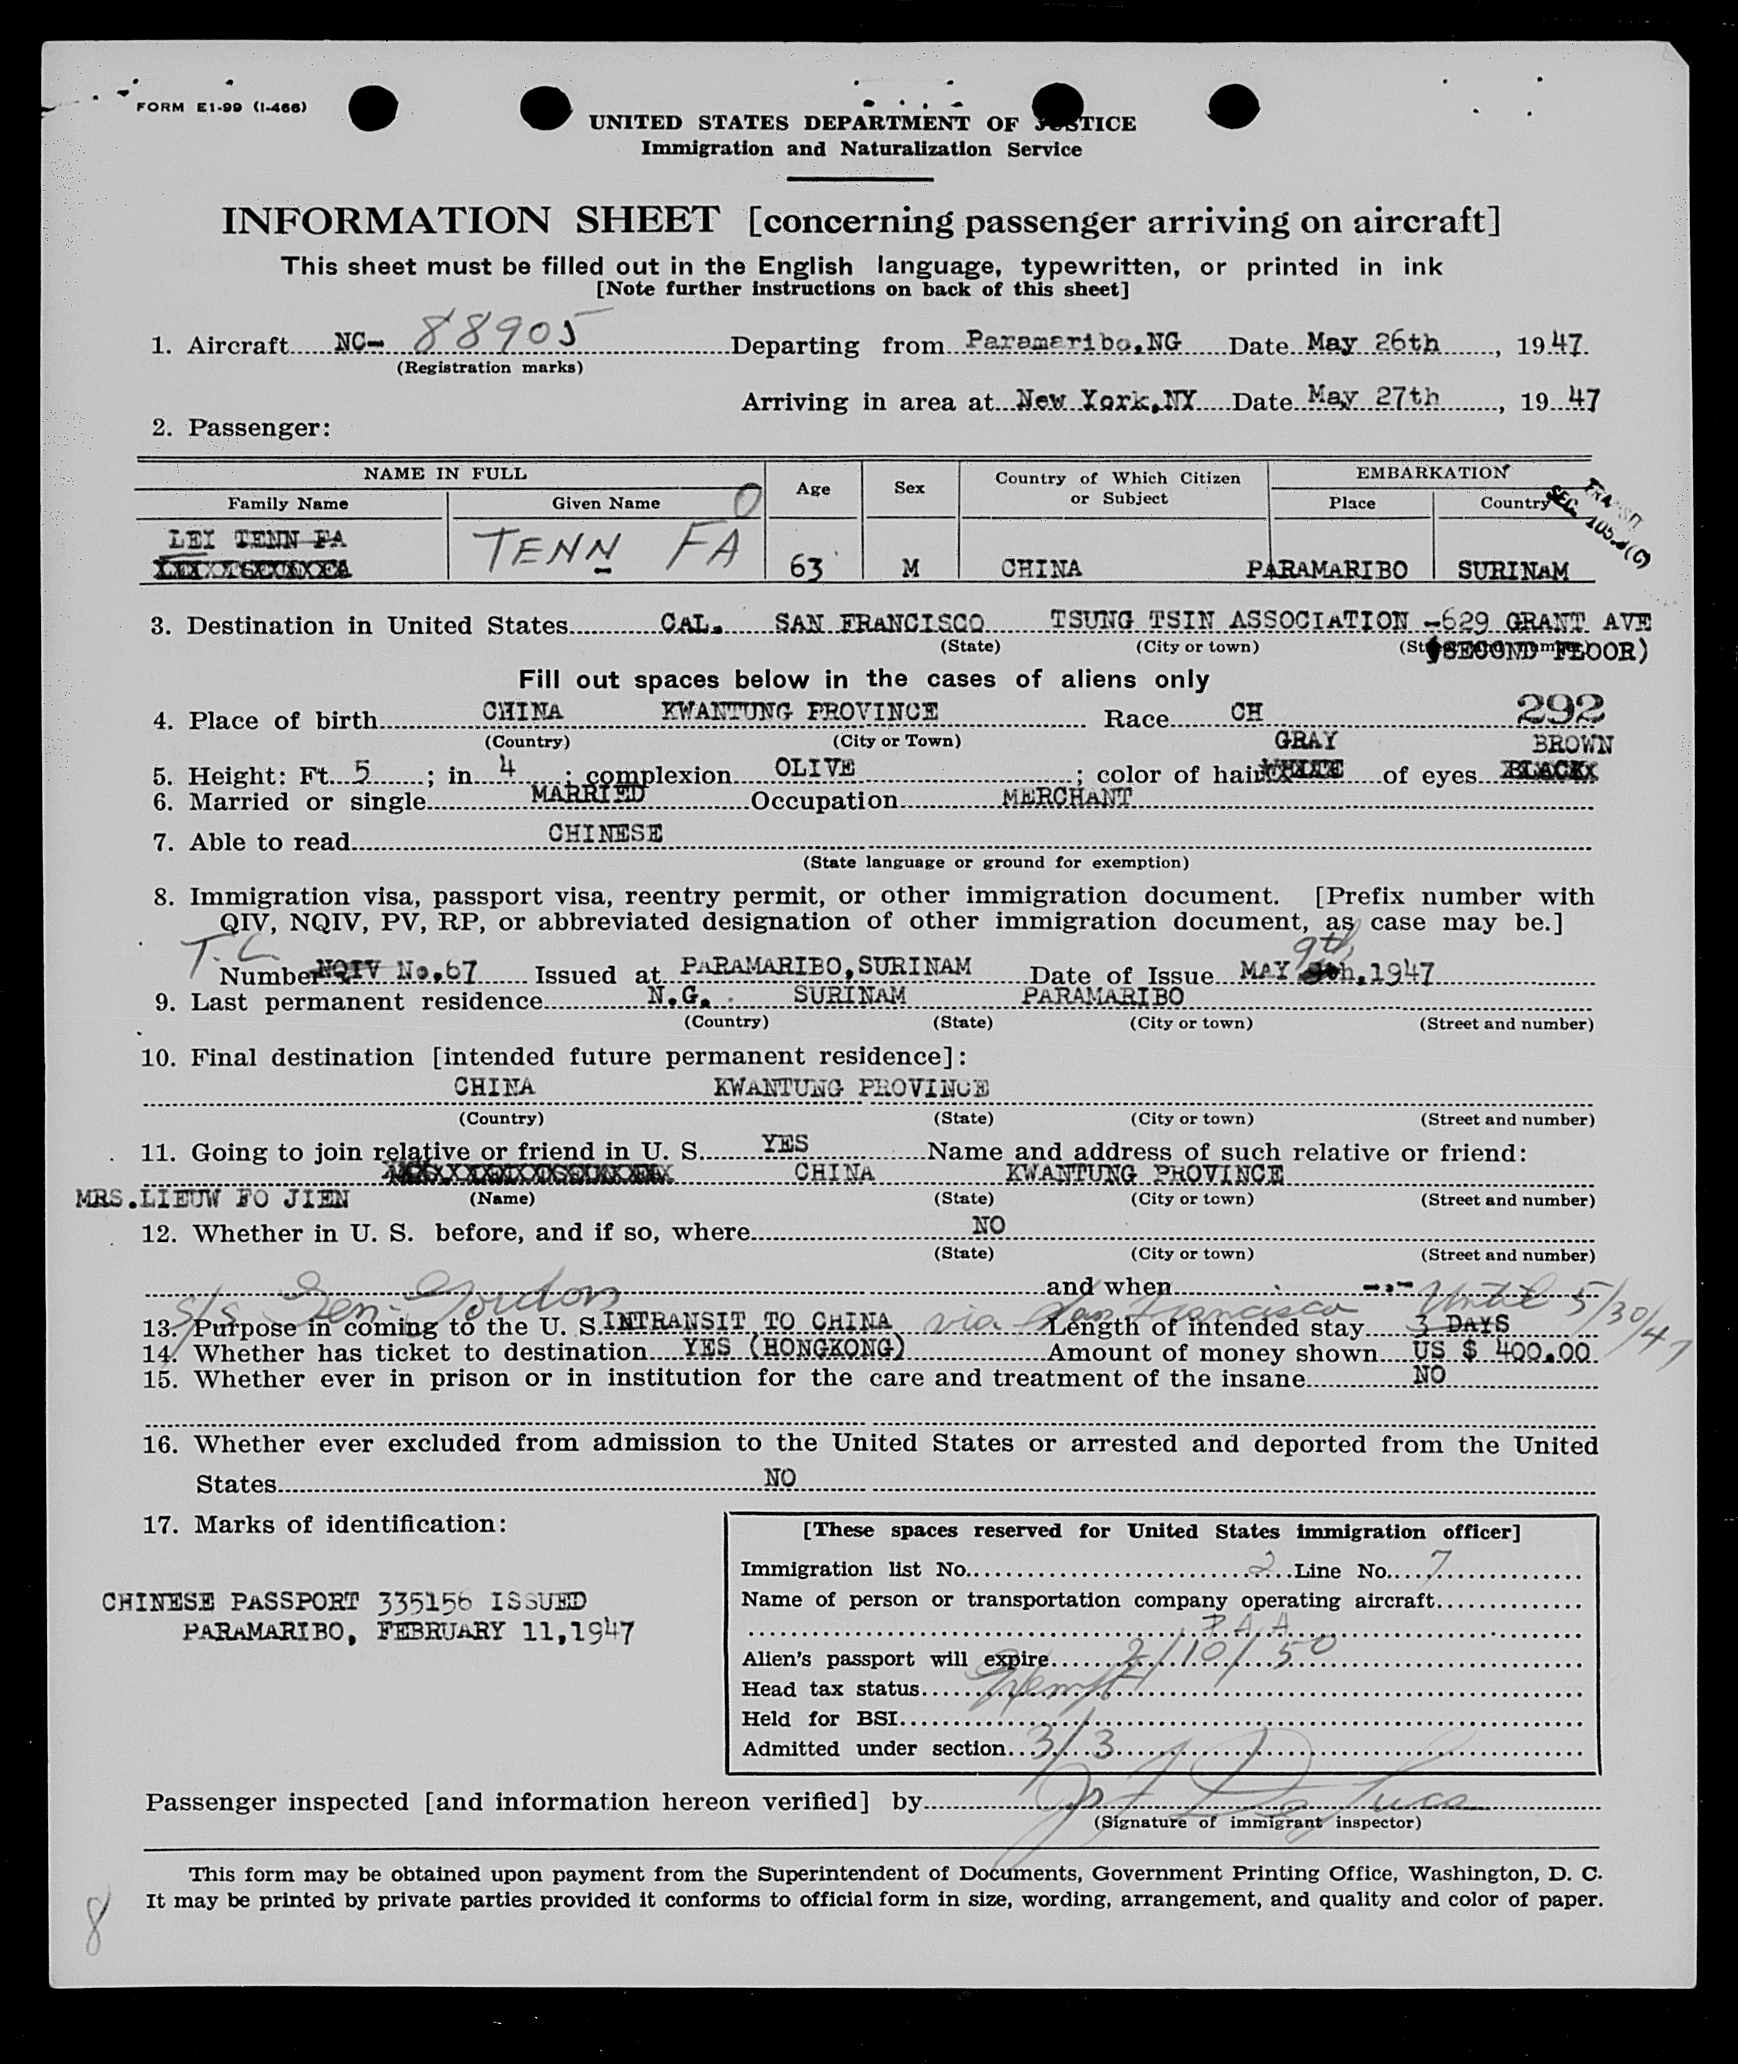 FORM E1-99 (I-466)
UNITED STATES DEPARTMENT OF JUSTICE
Immigration and Naturalization Service
INFORMATION SHEET [concerning passenger arriving on aircraft]
This sheet must be filled out in the English language, typewritten, or printed in ink
[Note further instructions on back of this sheet]
1. Aircraft NC- 88905 Departing from Paramaribo,NG Date May 26th, 1947.
(Registration marks)
Arriving in area at New York,NY Date May 27th, 19 47
2. Passenger:
NAME IN FULL Age Sex Country of Which Citizen or Subject EMBARKATION
Family Name Given Name O Place Country
TRANSIT SEC. 105.3(C)
LEI TENN FA TENN FA 63 M CHINA PARAMARIBO SURINAM
3. Destination in United States CAL. SAN FRANCISCO TSUNG TSIN ASSOCIATION -629 GRANT AVE
(State) (City or town) (SECOND FLOOR)
Fill out spaces below in the cases of aliens only
4. Place of birth CHINA KWANTUNG PROVINCE Race CH 292
(Country) (City or Town) GRAY BROWN
5. Height: Ft. 5; in. 4; complexion OLIVE; color of hair WHITE of eyes BLACK
6. Married or single MARRIED Occupation MERCHANT
7. Able to read CHINESE
(State language or ground for exemption)
8. Immigration visa, passport visa, reentry permit, or other immigration document. [Prefix number with
QIV, NQIV, PV, RP, or abbreviated designation of other immigration document, as case may be.]
T.C. 9th
Number NQIV No.67 Issued at PARAMARIBO,SURINAM Date of Issue MAY 9th,1947
9. Last permanent residence N.G. SURINAM PARAMARIBO
(Country) (State) (City or town) (Street and number)
10. Final destination [intended future permanent residence]:
CHINA KWANTUNG PROVINCE
(Country) (State) (City or town) (Street and number)
11. Going to join relative or friend in U. S. YES Name and address of such relative or friend:
CHINA KWANTUNG PROVINCE
MRS.LIEUW FO JIEN (Name) (State) (City or town) (Street and number)
12. Whether in U. S. before, and if so, where NO
(State) (City or town) (Street and number)
and when -.-
s/s Gen. Gordon via San Francisco Until 5/30/47
13. Purpose in coming to the U. S. INTRANSIT TO CHINA Length of intended stay 3 DAYS
14. Whether has ticket to destination YES (HONGKONG) Amount of money shown US $ 400.00
15. Whether ever in prison or in institution for the care and treatment of the insane NO
16. Whether ever excluded from admission to the United States or arrested and deported from the United
States NO
17. Marks of identification:
CHINESE PASSPORT 335156 ISSUED
PARAMARIBO, FEBRUARY 11,1947
[These spaces reserved for United States immigration officer]
Immigration list No. 2 Line No. 7
Name of person or transportation company operating aircraft
P.A.A.
Alien's passport will expire 2/10/50
Head tax status Exempt
Held for BSI
Admitted under section 3/3
Passenger inspected [and information hereon verified] by
(Signature of immigrant inspector)
This form may be obtained upon payment from the Superintendent of Documents, Government Printing Office, Washington, D. C.
It may be printed by private parties provided it conforms to official form in size, wording, arrangement, and quality and color of paper.
8